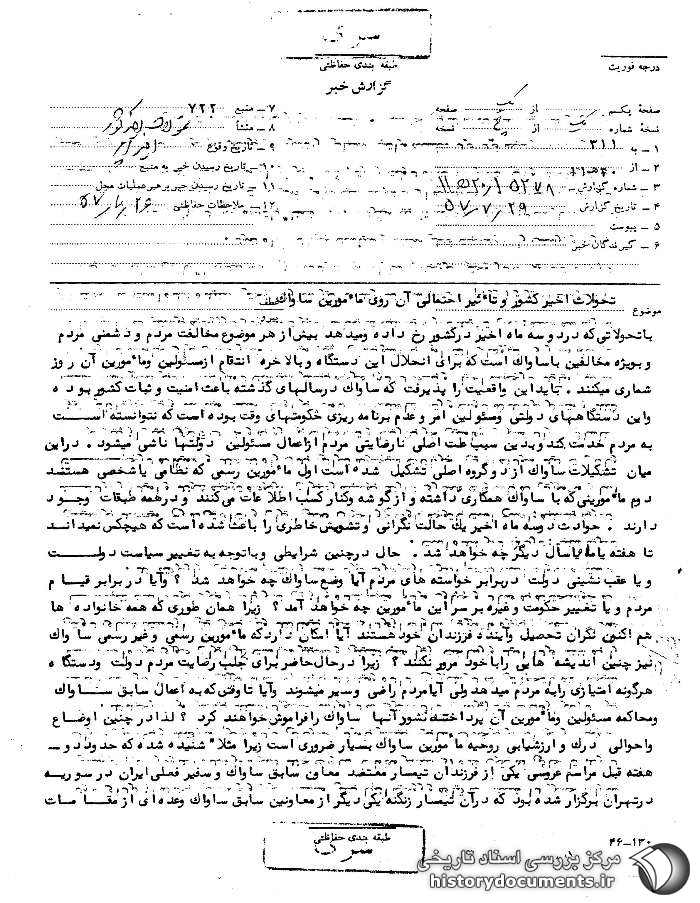 سری
طبقه بندی حفاظتی
درجه فوریت
گزارش خبر
صفحه یکم از یک صفحه
۷ ـ منبع ۷۲۲
نسخه شماره یک از پنج نسخه
۸ ـ منشأ
۱ ـ به ۳۱۱
۹ ـ تاریخ وقوع اخیراً
۲ ـ از ۲۰ ه ۱۱
۱۰ ـ تاریخ رسیدن خبر به منبع
۳ ـ شماره گزارش
۱۱ ـ تاریخ رسیدن خبر برهبر عملیات محل
۴ ـ تاریخ گزارش ۵۷/۷/۲۹
۱۲ ـ ملاحظات حفاظتی
۵ ـ پیوست
۶ ـ گیرندگان خبر
موضوع
تحولات اخیر کشور و تأثیر احتمالی آن روی مأمورین ساواک
با تحولاتی که در دو سه ماه اخیر در کشور رخ داده و میدهد بیش از هر موضوع مخالفت مردم و دشمنی مردم
و بویژه مخالفین با ساواک است که برای انحلال این دستگاه و بالاخره انتقام از مسئولین و مأمورین آن روز
شماری میکنند . باید این واقعیت را پذیرفت که ساواک در سالهای گذشته باعث امنیت و ثبات کشور بوده
و این دستگاههای دولتی و مسئولین امر و عدم برنامه ریزی حکومتهای وقت بوده است که نتوانسته است
به مردم خدمت کند و بدین سبب علت اصلی نارضایتی مردم از اعمال مسئولین دولتها ناشی میشود . در این
میان تشکیلات ساواک از دو گروه اصلی تشکیل شده است اول مأمورین رسمی که نظامی یا شخصی هستند
دوم مأمورینی که با ساواک همکاری داشته و از گوشه و کنار کسب اطلاعات می کنند و در همه طبقات وجود
دارند . حوادث دو سه ماه اخیر یک حالت نگرانی و تشویش خاطری را باعث شده است که هیچکس نمیداند
تا هفته یا ماه یا سال دیگر چه خواهد شد . حال در چنین شرایطی و با توجه به تغییر سیاست دولت
و یا عقب نشینی دولت در برابر خواسته های مردم آیا وضع ساواک چه خواهد شد ؟ و آیا در برابر قیام
مردم و یا تغییر حکومت و غیره بر سر این مأمورین چه خواهد آمد ؟ زیرا همان طوری که همه خانواده ها
هم اکنون نگران تحصیل و آینده فرزندان خود هستند آیا امکان دارد که مأمورین رسمی و غیر رسمی ساواک
نیز چنین اندیشه هایی را با خود مرور نکنند ؟ زیرا در حال حاضر برای جلب رضایت مردم دولت و دستگاه
هرگونه امتیازی را به مردم میدهد ولی آیا مردم راضی و سیر میشوند و آیا تا وقتی که به اعمال سابق ساواک
و محاکمه مسئولین و مأمورین آن پرداخته نشود آنها ساواک را فراموش خواهند کرد ؟ لذا در چنین اوضاع
و احوالی درک و ارزشیابی روحیه مأمورین ساواک بسیار ضروری است زیرا مثلاً شنیده شده که حدود دو ـ
هفته قبل مراسم عروسی یکی از فرزندان تیمسار معتضد معاون سابق ساواک و سفیر فعلی ایران در سوریه
در تهران برگزار شده بود که در آن تیمسار زنگنه یکی دیگر از معاونین سابق ساواک وعده ای از مقامات
۴۶-۱۳۰
طبقه بندی حفاظتی
سری
مرکز بررسی اسناد تاریخی
historydocuments.ir